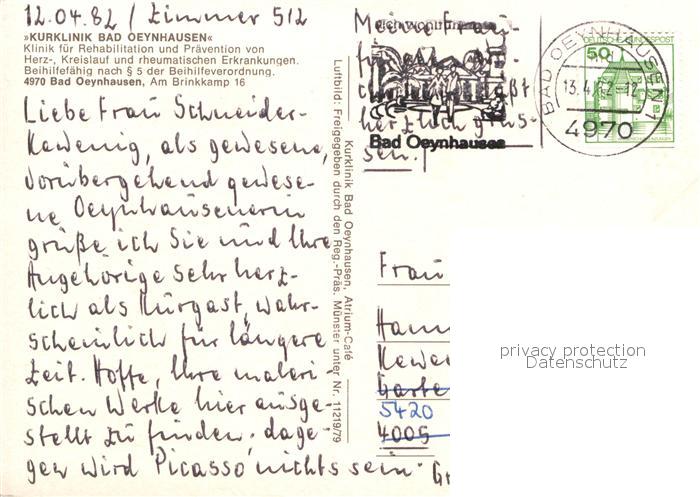 12.04.82 / Zimmer 512
»KURKLINIK BAD OEYNHAUSEN«
Klinik für Rehabilitation und Prävention von
Herz-, Kreislauf und rheumatischen Erkrankungen.
Beihilfefähig nach § 5 der Beihilfeverordnung.
4970 Bad Oeynhausen, Am Brinkkamp 16
Liebe Frau Schneider-
Kewenig, als gewesene,
vorübergehend gewese-
ne Oeynhausenerin
grüße ich Sie und Ihre
Angehörige sehr herz-
lich als Kurgast, wahr-
scheinlich für längere
Zeit. Hoffe, Ihre maleri-
schen Werke hier ausge-
stellt zu finden. dage-
gen wird Picasso nichts sein.
Kurklinik Bad Oeynhausen, Atrium-Café
Luftbild: Freigegeben durch den Reg.-Präs. Münster unter Nr. 11219/79
Meine Frau
herzlich grüs-
sen!
Bad Oeynhausen
DEUTSCHE BUNDESPOST
50
BAD OEYNHAUSEN 1
13.4.82-12
4970
Frau
Hann
Kewe
Garte
5420
4005
privacy protection
Datenschutz